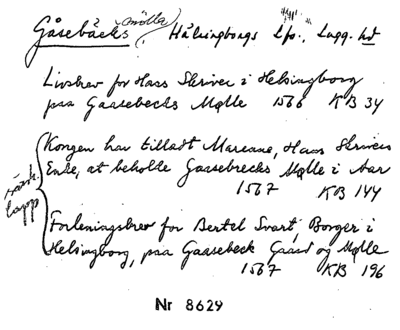 Gåsebäcks (mölla) Hälsingborgs Lfs., Lugg. hd
Livsbrev for Hans Skriver i Helsingborg
paa Gaasebecks Mølle 1566 KB 34
Kongen har tilladt Mareane, Hans Skrivers
Enke, at beholde Gaasebecks Mølle i Aar
1567 KB 144
Forleningsbrev for Bertel Svart, Borger i
Helsingborg, paa Gaasebeck Gaard og Mølle
1567 KB 196
Nr 8629